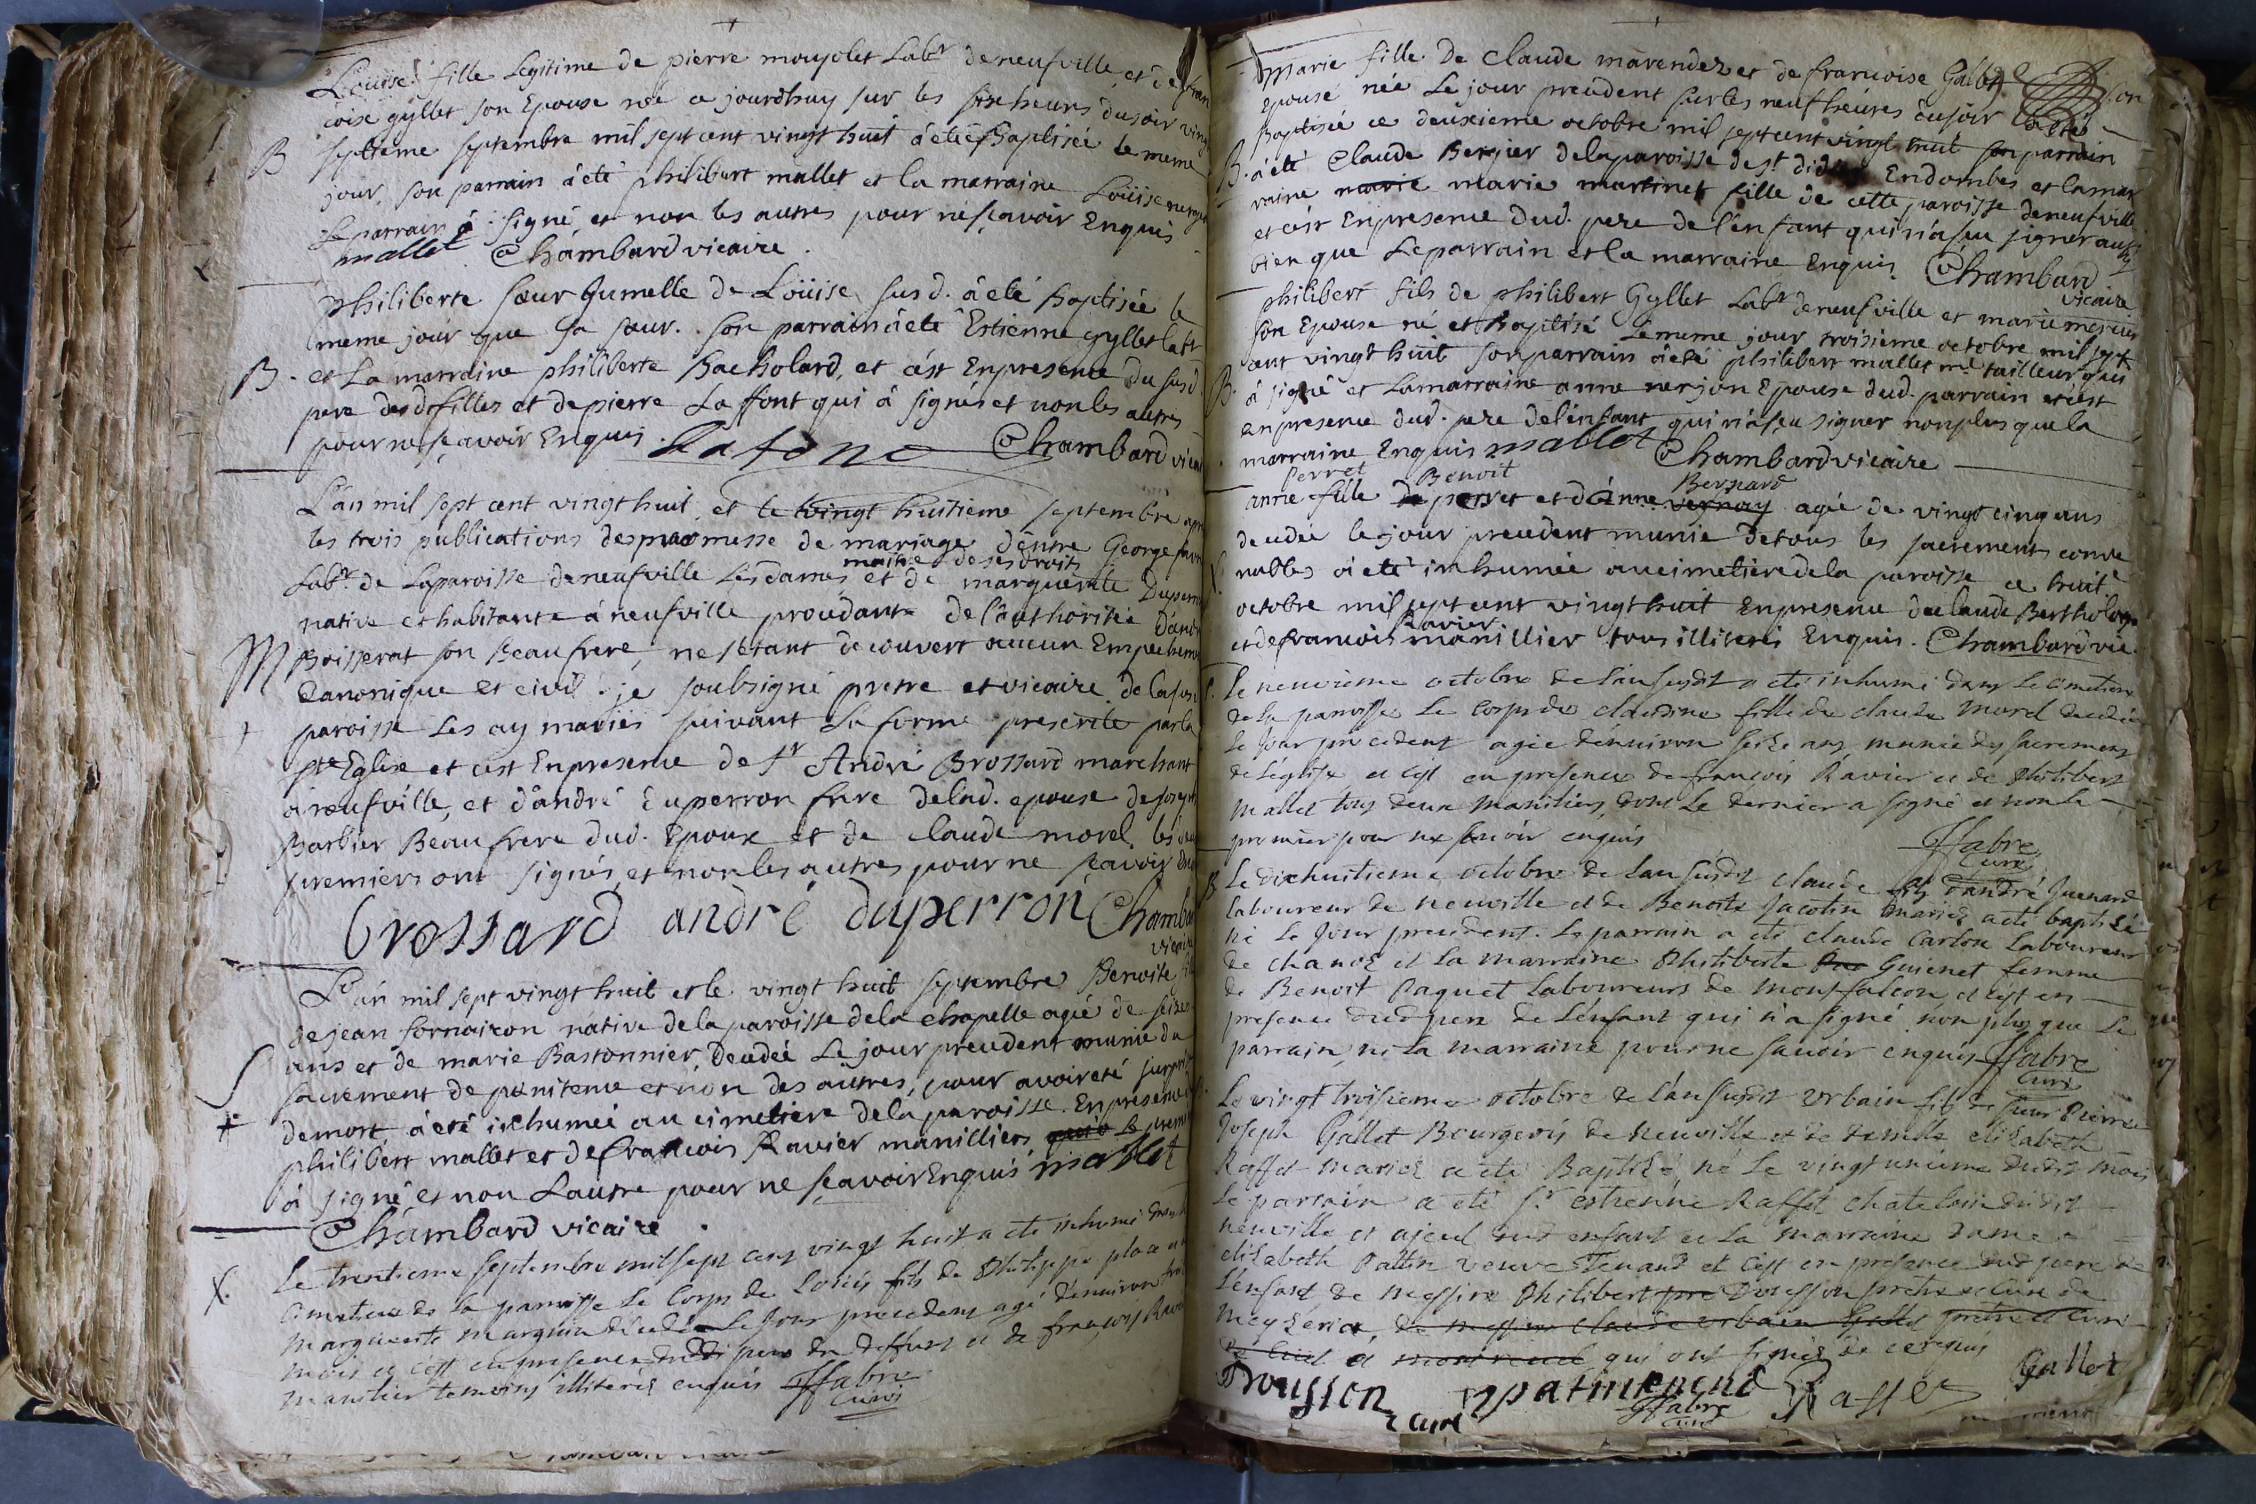 Loüise fille Legitime de pierre moujolet Labr. de neufville et de fran
coise gyllet son Epouse née ce jourdhuy sur les six heures du soir vingt
B septieme septembre mil sept cent vingt huit à eté Baptisée le meme
jour, son parrain à été philibert mallet et la marraine Loüise
Le parrain à signé et non les autres pour ne sçavoir Enquis
mallet Chambard vicaire.
philiberte sœur Jumelle de Loüise susd. à eté Baptisée le
meme jour que sa sœur. son parrain à eté Estienne gyllet labr
B. et La marraine philiberte Bacholard, et c'est Enpresence du susd.
pere desd. filles et de pierre Laffont qui à signés et non les autres
pour ne sçavoir Enquis. Lafont Chambard vicai
L'an mil sept cent vingt huit, et le vingt huitieme septembre apre
les trois publications des promesse de mariage d'entre George
maitre de ses droits
Labr. de Laparoisse deneufville Lesdames et de marguerite Duperr
native et habitante à neufville procedante de l'authorité D'and
M Boisserat son Beaufrere, ne s'etant decouvert aucun Empechem
Canonique et civil. je soubsigné pretre et vicaire de la sus
paroisse Les ay mariés suivant la forme prescrite par la
ste Eglise et c'est Enpresence de sr André Brossard marchant
à neufville, et d'andré Duperron frere delad. epouse de Joseph
Barbier Beaufrere dud. Epoux et de claude morel les deux
premiers ont signés, et non les autres pour ne sçavoir Enq
Brossard andré duperron Chamba
vicaire
L'an mil sept vingt huit et le vingt huit septembre Benoite fil
de jean fornairon native de la paroisse de la chapelle agée de seize
ans et de marie Bastonnier, decedeé Le jour precedent munie du
S sacrement de penitence et non des autres, pour avoir eté surpri
demort à eté inhumée au cimetiere de la paroisse. Enpresence de
philibert mallet et de francois Ravier manilliers le premi
à signé et non Lautre pour ne sçavoir Enquis mallet
Chambard vicaire.
Le trentieme septembre mil sept cens vingt huit a eté inhumé dans le
Cimetiere de la paroisse Le Corps de Loüis fils de Philippe place et
marguerite marguin décedé Le Jour precedens agé d'enuiron trois
mois et c'est en presence dudit pere du deffunt et de françois Ravier
manilier temoins illiterés enquis JFabre
Curé
Marie fille De Claude marendez et de francoise Gallet son
epouse née Le jour precedent sur les neuf heures du soir à été
Baptisée ce deuxieme octobre mil sept cent vingt huit son parrain
B. à eté Claude Bergier de la paroisse de st didier En dombes et la mar
raine marie marie martinet fille de cette paroisse deneufville
et c'est Enpresence dud. pere de l'enfant qui n'a sçu signer aussi
bien que Leparrain et la marraine Enquis Chambard
vicaire
philibert fils de philibert Gyllet Labr. deneufville et marie mercier
son Epouse né et Baptisé Le meme jour troisieme octobre mil sept
cent vingt huit son parrain à eté philibert mallet me tailleur qui
B. à signé et Lamarraine anne nerjon Epouse dud. parrain et c'est
en presence dud. pere de l'enfant qui n'a sçu signer non plus que la
marraine Enquis mallet Chambard vicaire
Perret Benoit Bernard
anne fille de perret et d'anne vernay agée de vingt cinq ans
decedée le jour precedent munie de tous les sacrements conve
nables à eté inhumée au cimetiere de la paroisse ce huite
octobre mil sept cent vingt huit Enpresence de claude Bertholo
Ravier
et de francois manillier tous illiterés Enquis. Chambard vic.
Le neuvieme octobre de L'an susdit a eté inhumé dans Le Cimetiere
de la paroisse Le Corps de Claudine fille de claude morel decedée
Le Jour precedent agée d'enuiron seize ans munie des sacremens
de L'eglise et c'est en presence de francois Ravier et de Philibert
mallet tous deux maniliers, dont Le dernier a signé et non le
premier pour ne sçavoir enquis JFabre
Curé
B Le dixhuitieme octobre de L'an susdit claude fils d'andré Guenard
laboureur de neuville et de Benoite Jacotin mariés a eté baptisé
né Le Jour precedent. Le parrain a eté claude Carlon Laboureur
de chanoz et La marraine Philiberte Guienet femme
de Benoit Paquet laboureurs de montfalcon, et c'est en
presence dud pere de L'enfant qui n'a signé non plus que Le
parrain, ni La marraine pour ne sçavoir enquis JFabre
Curé
Le vingt troisieme octobre de L'an susdit Urbain fils de sieur Pierre
Joseph Gallet Bourgeois de Neuville et de demlle elizabeth
Raffet mariez a eté Baptisé, né Le vingt unieme dudit mois
Le parrain a eté sr estienne Raffet chatelain dudit
neuville et ajeul dud enfant et La marraine dame
elizabeth Patin veuve Tenand et c'est en presence dud pere de
L'enfant, de messire Philibert pre Dousson pretre et Curé de
mezeriat, de messire claude urbain Gallet pretre et Curé
et montreuel qui ont signés de ce enquis
Dousson curé Raffet Gallet
JFabre
Curé